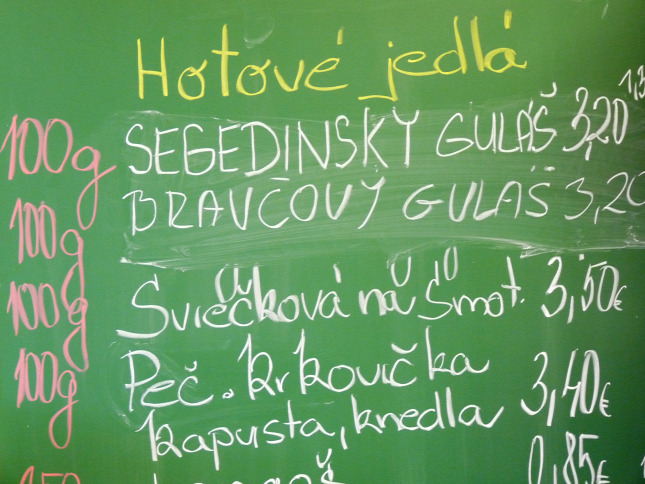 Hotové jedlá
100g SEGEDINSKÝ GULÁŠ 3,20
100g BRAVČOVÝ GULÁŠ 3,20
100g Sviečková na Smot. 3,50€
100g Peč. krkovička
kapusta, knedla 3,40€
0,85€